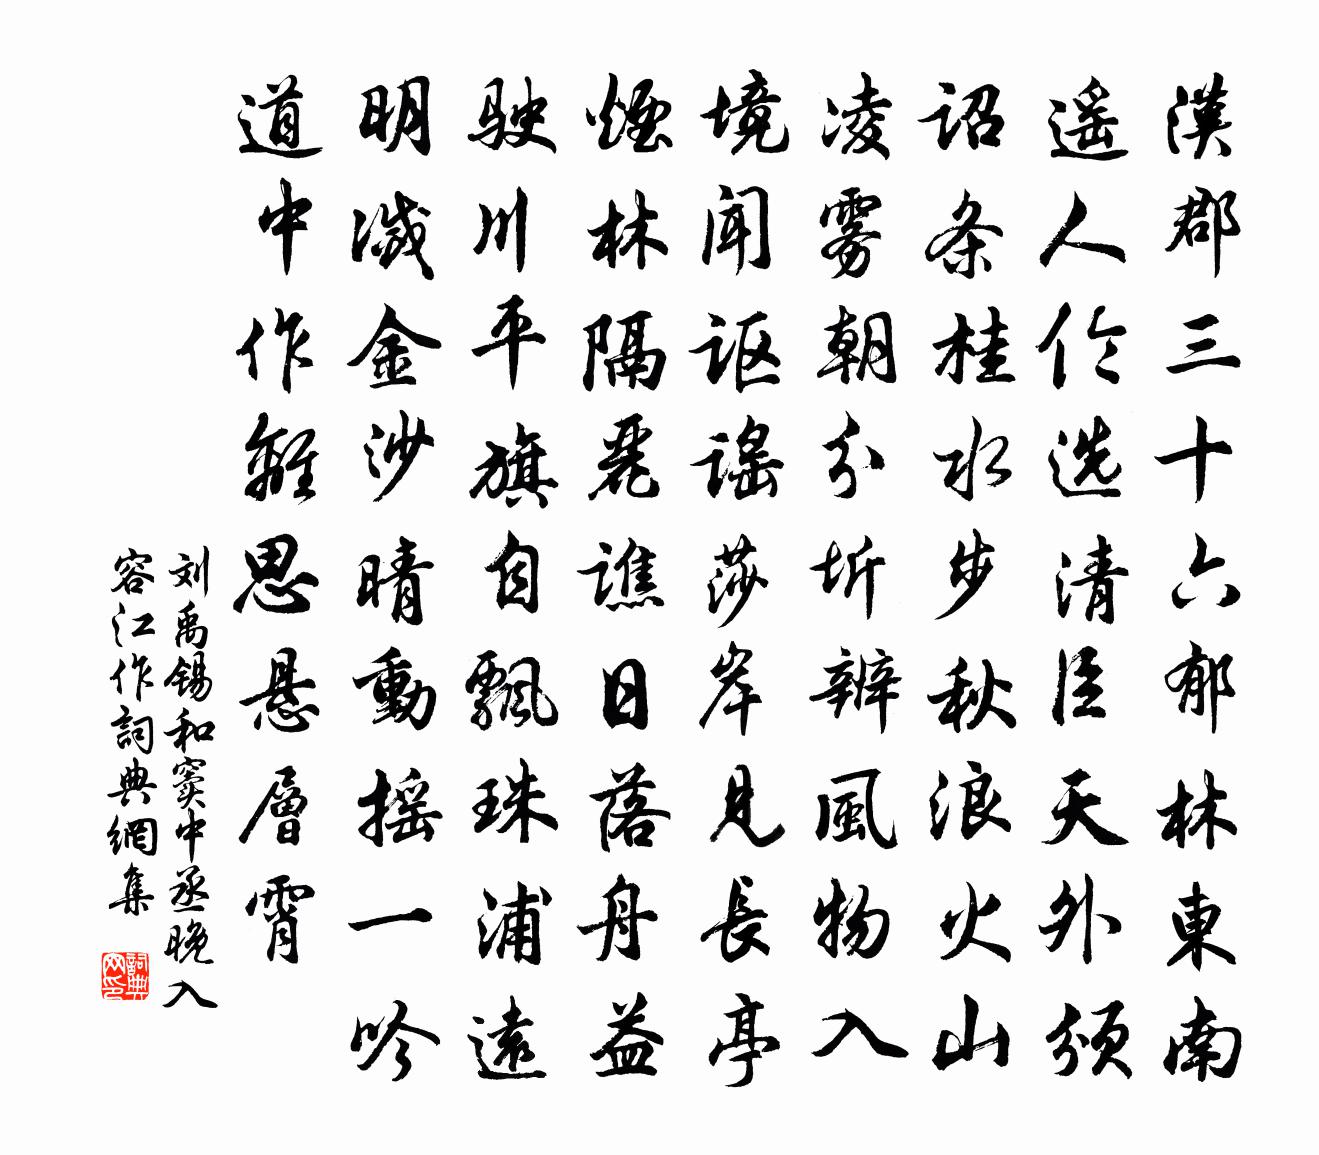 漢郡三十六郁林東南
遥人伦选清臣天外颁
诏条桂水步秋浪火山
凌雾朝分圻辨風物入
境闻讴謠莎岸見長亭
煙林隔麗譙日落舟益
駛川平旗自飄珠浦遠
明滅金沙晴動摇一吟
道中作離思悬層霄
刘禹锡和窦中丞晚入
容江作詞典網集
詞典网印